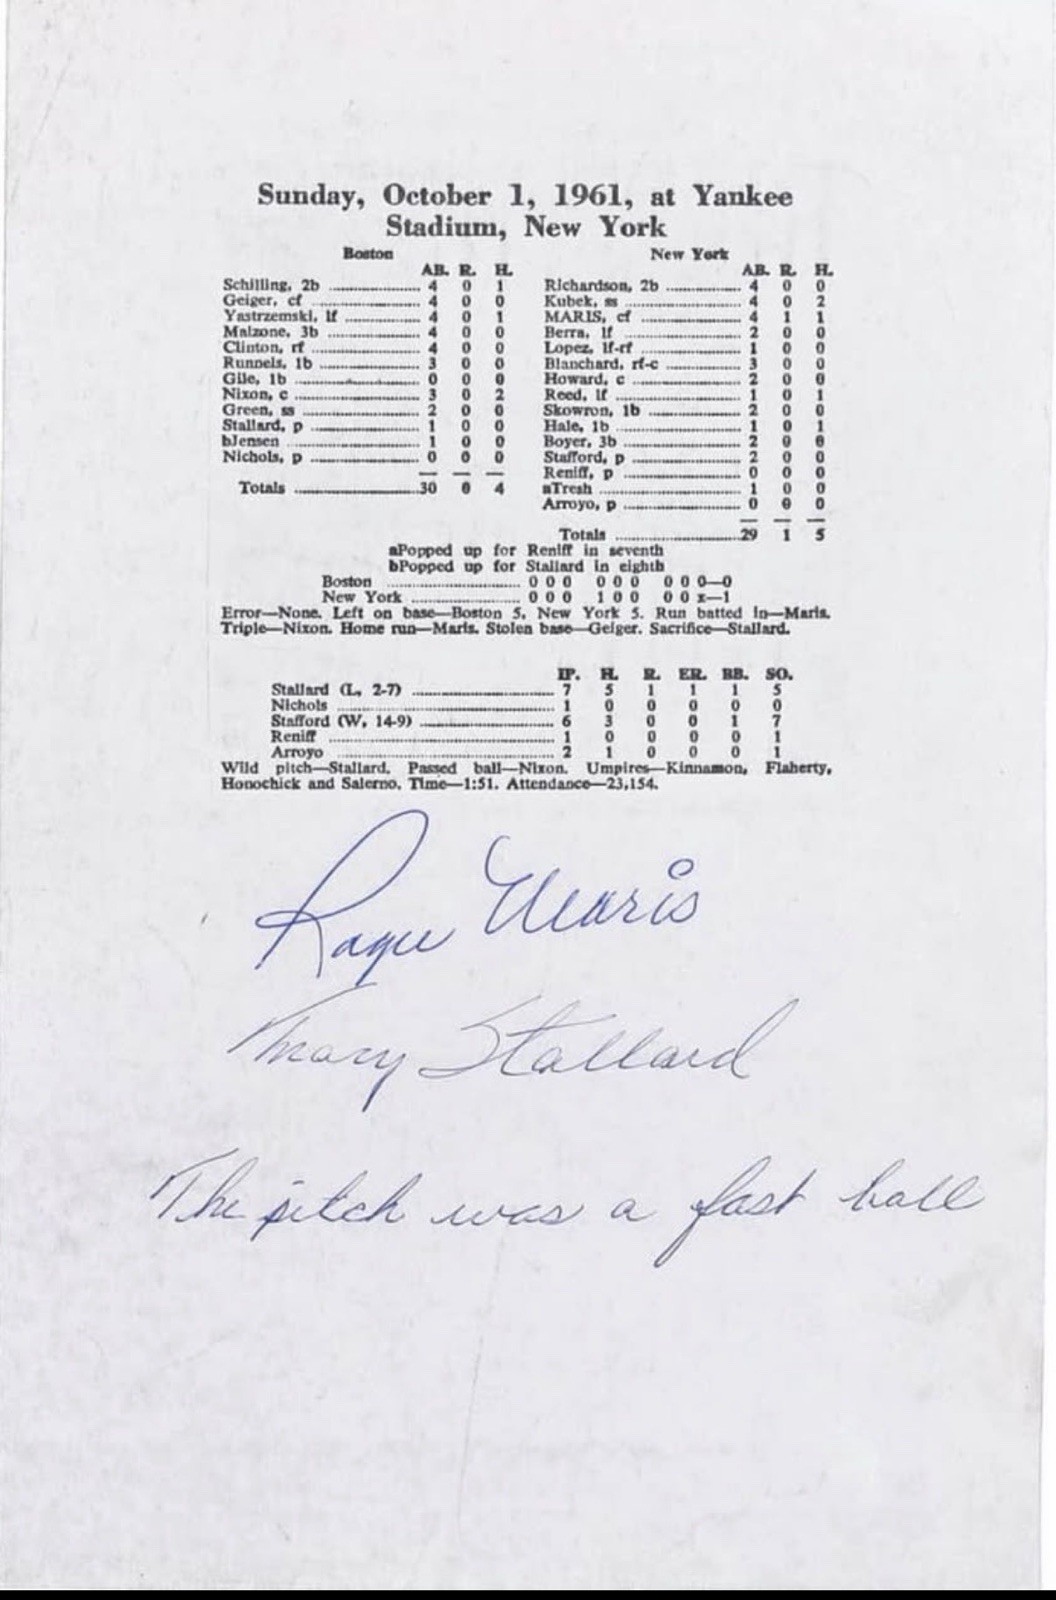 Sunday, October 1, 1961, at Yankee
Stadium, New York
Boston
AB. R. H.
Schilling, 2b 4 0 1
Geiger, cf 4 0 0
Yastrzemski, lf 4 0 1
Malzone, 3b 4 0 0
Clinton, rf 4 0 0
Runnels, 1b 3 0 0
Gile, 1b 0 0 0
Nixon, c 3 0 2
Green, ss 2 0 0
Stallard, p 1 0 0
bJensen 1 0 0
Nichols, p 0 0 0
Totals 30 0 4
New York
AB. R. H.
Richardson, 2b 4 0 0
Kubek, ss 4 0 2
MARIS, cf 4 1 1
Berra, lf 2 0 0
Lopez, lf-rf 1 0 0
Blanchard, rf-c 3 0 0
Howard, c 2 0 0
Reed, lf 1 0 1
Skowron, 1b 2 0 0
Hale, 1b 1 0 1
Boyer, 3b 2 0 0
Stafford, p 2 0 0
Reniff, p 0 0 0
aTresh 1 0 0
Arroyo, p 0 0 0
Totals 29 1 5
aPopped up for Reniff in seventh
bPopped up for Stallard in eighth
Boston 0 0 0 0 0 0 0 0 0—0
New York 0 0 0 1 0 0 0 0 x—1
Error—None. Left on base—Boston 5, New York 5. Run batted in—Maris.
Triple—Nixon. Home run—Maris. Stolen base—Geiger. Sacrifice—Stallard.
IP. H. R. ER. BB. SO.
Stallard (L, 2-7) 7 5 1 1 1 5
Nichols 1 0 0 0 0 0
Stafford (W, 14-9) 6 3 0 0 1 7
Reniff 1 0 0 0 0 1
Arroyo 2 1 0 0 0 1
Wild pitch—Stallard. Passed ball—Nixon. Umpires—Kinnamon, Flaherty,
Honochick and Salerno. Time—1:51. Attendance—23,154.
Roger Maris
Tracy Stallard
The pitch was a fast ball